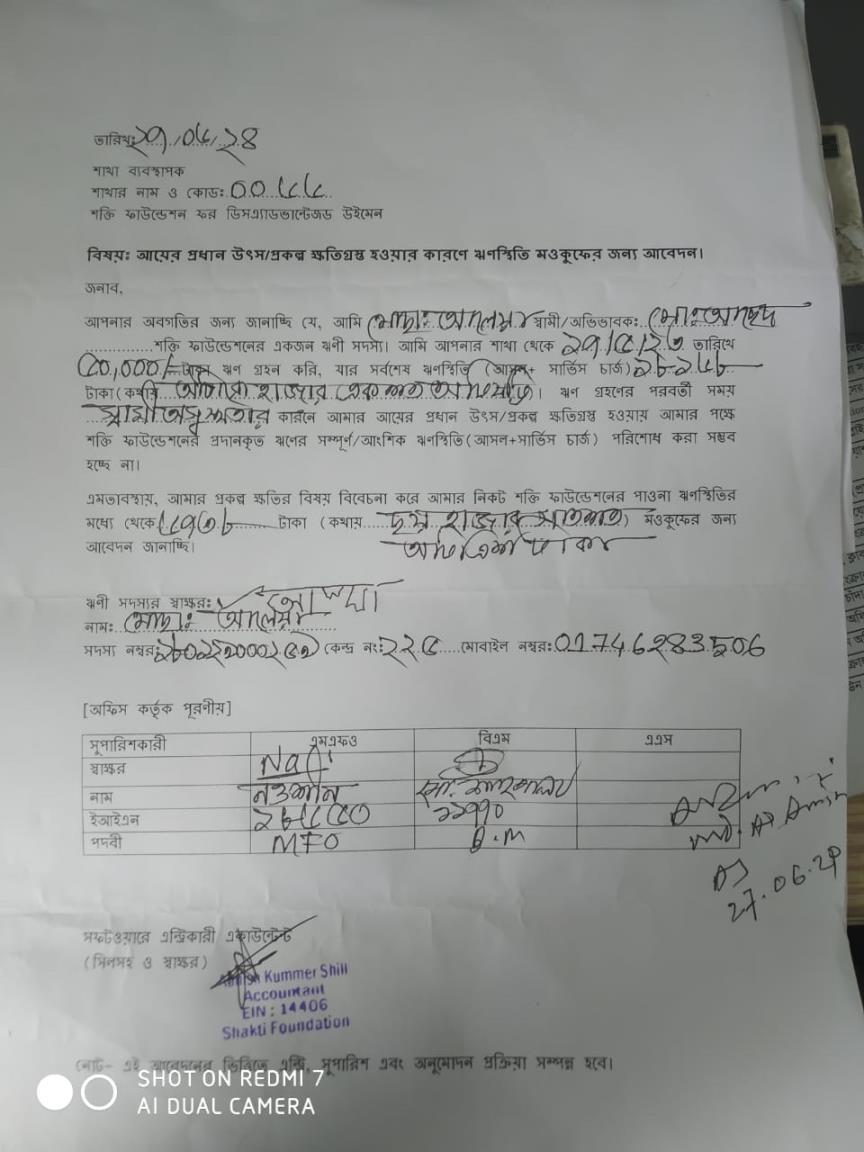 তারিখঃ ২৭/০৬/২৪
শাখা ব্যবস্থাপক
শাখার নাম ও কোডঃ
শক্তি ফাউন্ডেশন ফর ডিসএ্যাডভান্টেজড উইমেন
বিষয়ঃ আয়ের প্রধান উৎস/প্রকল্প ক্ষতিগ্রস্ত হওয়ার কারণে ঋণস্থিতি মওকুফের জন্য আবেদন।
জনাব,
আপনার অবগতির জন্য জানাচ্ছি যে, আমি মোছাঃ স্বামী/অভিভাবকঃ মোঃ
শক্তি ফাউন্ডেশনের একজন ঋণী সদস্য। আমি আপনার শাখা থেকে ২৭/৫/২৩ তারিখে
৫০,০০০/- টাকা ঋণ গ্রহন করি, যার সর্বশেষ ঋণস্থিতি (আসল+ সার্ভিস চার্জ)
টাকা(কথায় হাজার একশত ) । ঋণ গ্রহণের পরবর্তী সময়
স্বামী অসুস্থতার কারনে আমার আয়ের প্রধান উৎস/প্রকল্প ক্ষতিগ্রস্ত হওয়ায় আমার পক্ষে
শক্তি ফাউন্ডেশনের প্রদানকৃত ঋণের সম্পূর্ণ/আংশিক ঋণস্থিতি(আসল+সার্ভিস চার্জ) পরিশোধ করা সম্ভব
হচ্ছে না।
এমতাবস্থায়, আমার প্রকল্প ক্ষতির বিষয় বিবেচনা করে আমার নিকট শক্তি ফাউন্ডেশনের পাওনা ঋণস্থিতির
মধ্যে থেকে টাকা (কথায় হাজার সাতশত ) মওকুফের জন্য
আবেদন জানাচ্ছি। আটত্রিশ টাকা
ঋণী সদস্যর স্বাক্ষরঃ
নামঃ মোছাঃ
সদস্য নম্বরঃ কেন্দ্র নংঃ ২২৫ মোবাইল নম্বরঃ 01746283506
[অফিস কর্তৃক পূরণীয়]
সুপারিশকারী এমএফও বিএম এএস
স্বাক্ষর
নাম নওশীন মো.
ইআইএন
পদবী MFO B.M
Md. Al Amin
AS
27.06.24
সফটওয়ারে এন্ট্রিকারী একাউন্টেন্ট
(সিলসহ ও স্বাক্ষর)
Kummer Shill
Accountant
EIN : 14406
Shakti Foundation
নোট- এই আবেদনের ভিত্তিতে এন্ট্রি, সুপারিশ এবং অনুমোদন প্রক্রিয়া সম্পন্ন হবে।
SHOT ON REDMI 7
AI DUAL CAMERA